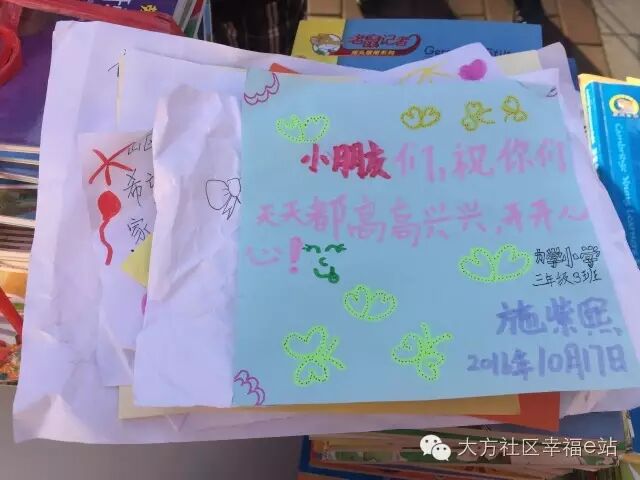 老鼠记者
Geronimo Stilton
小朋友们,祝你们
天天都高高兴兴,开开心
心!
小学
三年级3班
施紫熙
2016年10月17日
希
家
大方社区幸福e站